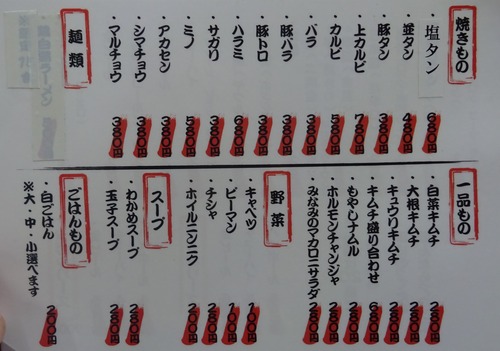 焼きもの
・塩タン 680円
・並タン 480円
・豚タン 380円
・上カルビ 780円
・カルビ 580円
・バラ 380円
・豚バラ 380円
・豚トロ 380円
・ハラミ 680円
・サガリ 380円
・ミノ 580円
・アカセン 380円
・シマチョウ 380円
・マルチョウ 380円
麺類
一品もの
・白菜キムチ 280円
・大根キムチ 280円
・キュウリキムチ 280円
・キムチ盛り合わせ 680円
・もやしナムル 280円
・ホルモンチャンジャ 280円
・みなみのマカロニサラダ 280円
野菜
・キャベツ 100円
・ピーマン 100円
・チシャ 280円
・ホイルニンニク 280円
スープ
・わかめスープ 280円
・玉子スープ 280円
ごはんもの
・白ごはん 200円
※大・中・小選べます